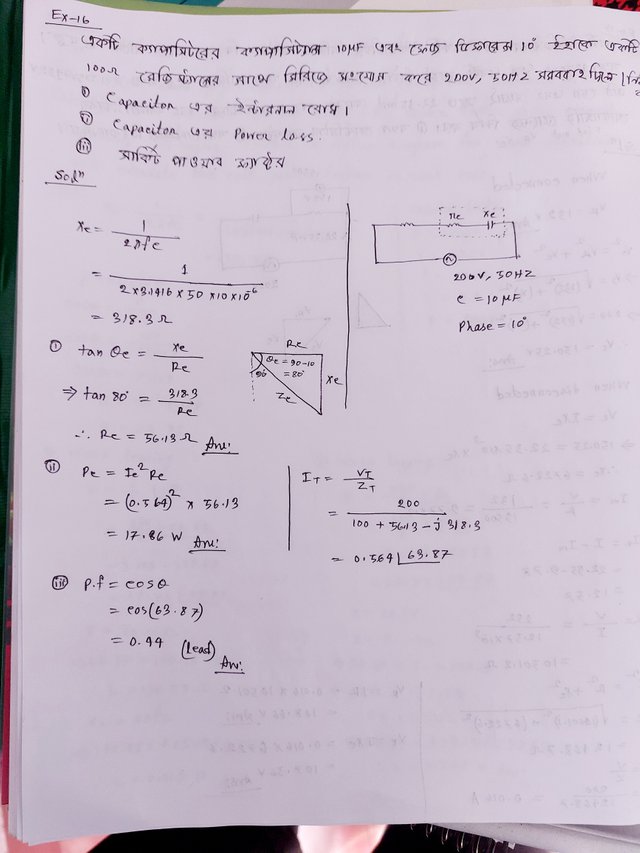 Ex-16
একটি ক্যাপাসিটরের ক্যাপাসিট্যান্স 10μF এবং ফেজ ডিফারেন্স 10° ইহাকে একটি
100Ω রেজিস্ট্যান্সের সাথে সিরিজে সংযোগ করে 200V, 50HZ সরবরাহ দিলে
i) Capacitor এর ইন্টারনাল রোধ।
ii) Capacitor এর Power loss.
iii) সার্কিট পাওয়ার ফ্যাক্টর
Solⁿ
Xc = 1 / 2πfc
= 1 / 2×3.1416×50×10×10⁻⁶
= 318.3 Ω
Rc Xc
200V, 50HZ
C = 10 μF
Phase = 10°
i) tan θc = Xc / Rc
⇒ tan 80° = 318.3 / Rc
∴ Rc = 56.13 Ω Ans:
Rc
θc = 90-10
= 80°
90°
Xc
Zc
ii) Pc = Ic² Rc
= (0.564)² × 56.13
= 17.86 W Ans:
I_T = V_T / Z_T
= 200 / 100 + 56.13 - j 318.3
= 0.564 ∠63.87
iii) P.f = cosθ
= cos(63.87)
= 0.44 (Lead) Ans: